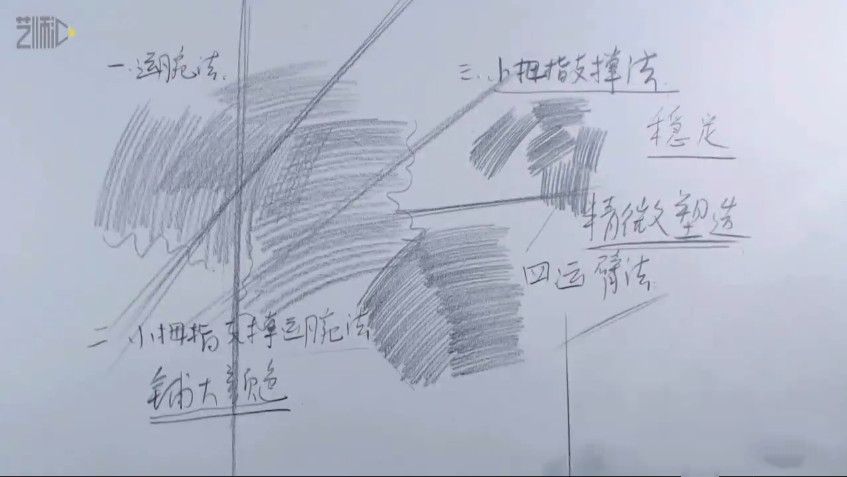 艺师汇
一.运腕法.
三.小拇指支撑法.
稳定
精微塑造
四运臂法.
二小拇指支撑运腕法
铺大颜色